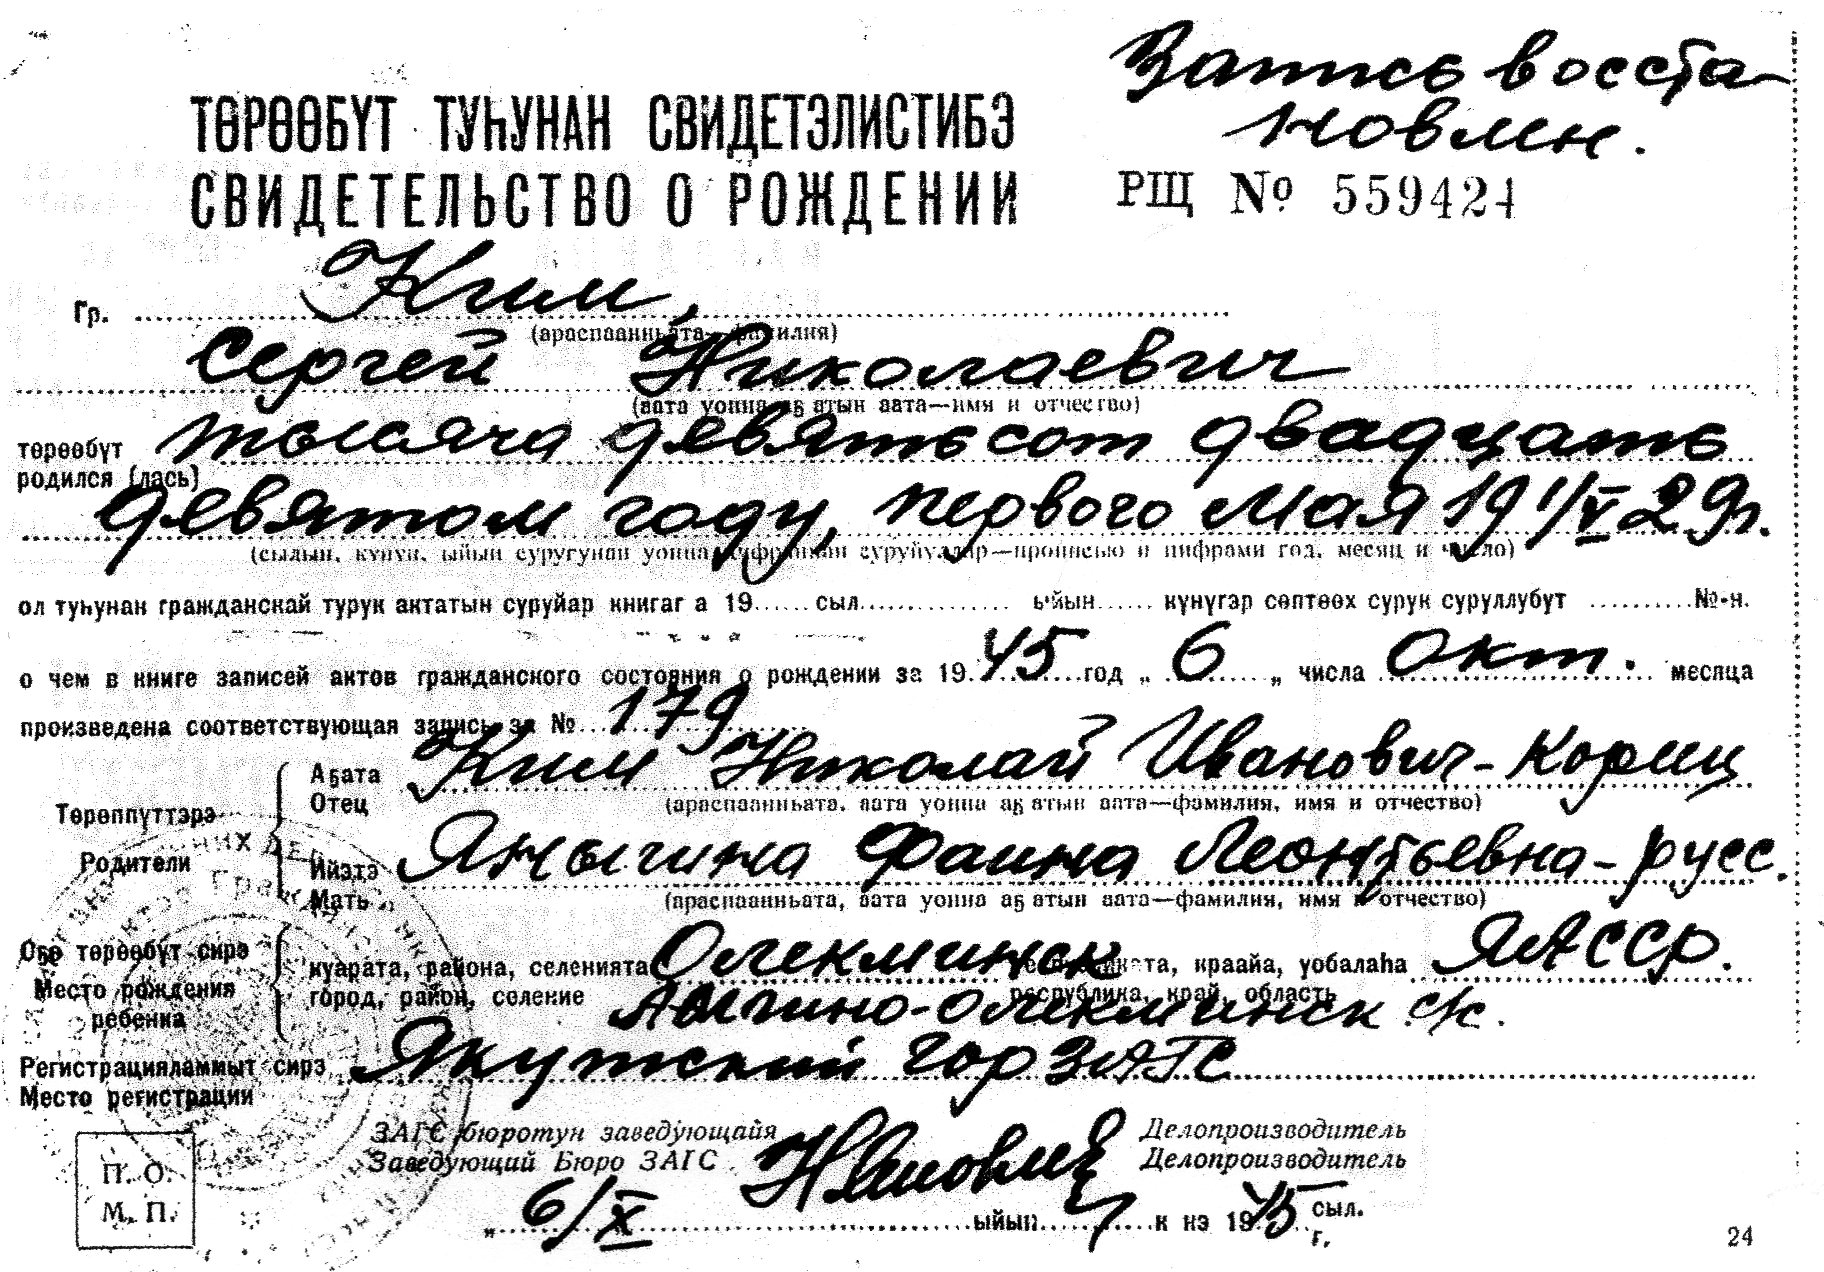 Запись восста-
новлен.
ТӨРӨӨБҮТ ТУҺУНАН СВИДЕТЭЛИСТИБЭ
СВИДЕТЕЛЬСТВО О РОЖДЕНИИ
РЩ № 559424
Гр. Ким,
(араспаанньата—фамилия)
Сергей Николаевич
(аата уонна аҕатын аата—имя и отчество)
төрөөбүт тысяча девятьсот двадцать
родился (лась)
девятом году, первого мая 19 1/V 29г.
(сылын, күнүн, ыйын суругунан уонна цифранан суруйуллар—прописью и цифрами год, месяц и число)
ол туһунан гражданскай турук актатын суруйар книгаҕа 19...... сыл.............. ыйын...... күнүгэр сөптөөх сурук суруллубут ..........№-н.
о чем в книге записей актов гражданского состояния о рождении за 19 45 год „ 6 „ числа окт. месяца
произведена соответствующая запись за № 179
Аҕата Ким Николай Иванович - кореец
Отец
(араспаанньата, аата уонна аҕатын аата—фамилия, имя и отчество)
Төрөппүттэрэ
Родители
Ийэтэ Яныгина Фаина Леонтьевна - русс.
Мать
(араспаанньата, аата уонна аҕатын аата—фамилия, имя и отчество)
Оҕо төрөөбүт сирэ
куарата, района, селенията Олекминск республиката, краайа, уобалаһа ЯАССР.
Место рождения
ребенка
город, район, селение республика, край, область
-Олекминск с/с.
Регистрацияламмыт сирэ Якутский горЗАГС
Место регистрации
ЗАГС бюротун заведующайя Делопроизводитель
Заведующий Бюро ЗАГС Делопроизводитель
П. О.
М. П.
„ 6/X ыйын к нэ 19 45 сыл.
г.
24